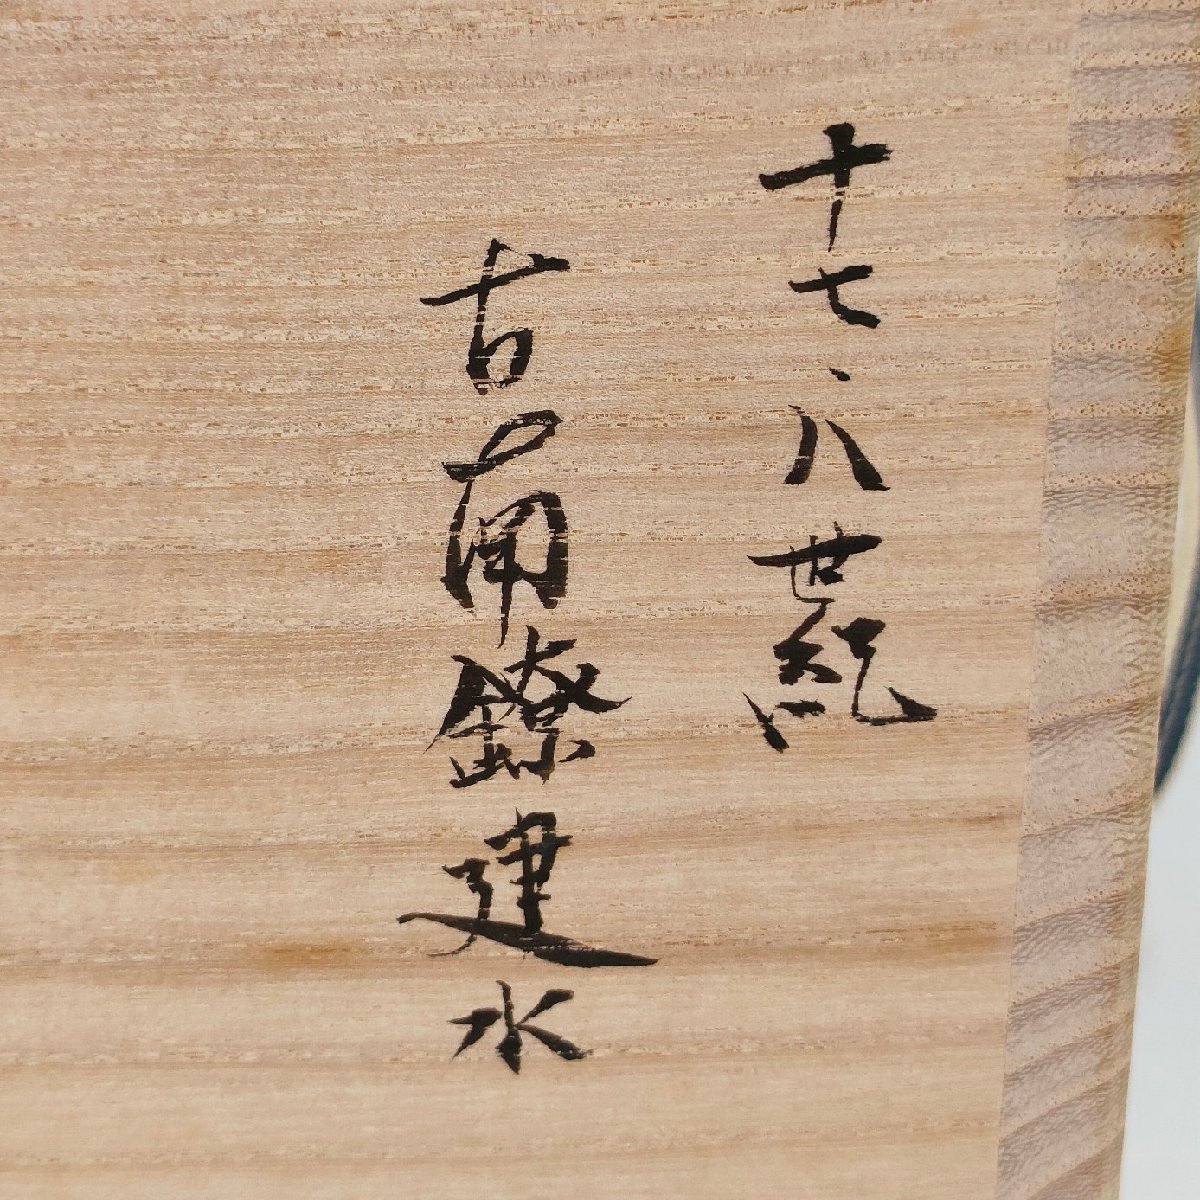 十七、八世紀
古南鐐建水